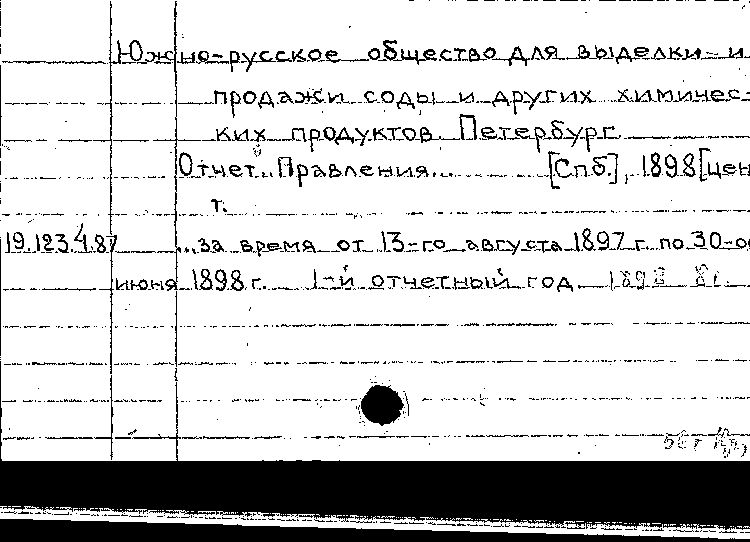 Южно-русское общество для выделки и
продажи соды и других химичес-
ких продуктов. Петербург.
Отчет..Правления... [Спб.], 1898 [цен
т.
19.123.4.87 ...за время от 13-го августа 1897 г. по 30-ое
июня 1898 г. 1-й отчетный год. 1898